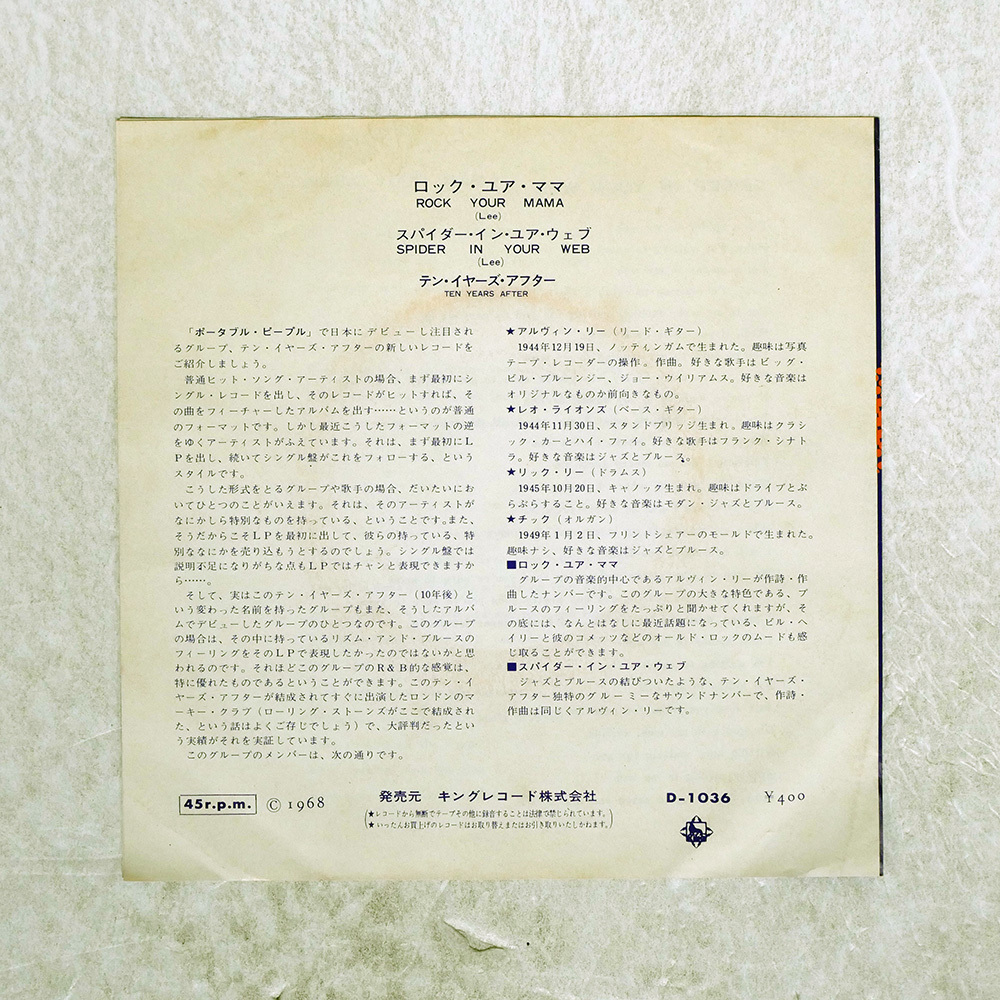 ロック・ユア・ママ
ROCK YOUR MAMA
(Lee)
スパイダー・イン・ユア・ウェブ
SPIDER IN YOUR WEB
(Lee)
テン・イヤーズ・アフター
TEN YEARS AFTER
「ポータブル・ピープル」で日本にデビューし注目され
るグループ、テン・イヤーズ・アフターの新しいレコードを
ご紹介しましょう。
普通ヒット・ソング・アーティストの場合、まず最初にシ
ングル・レコードを出し、そのレコードがヒットすれば、そ
の曲をフィーチャーしたアルバムを出す……というのが普通
のフォーマットです。しかし最近こうしたフォーマットの逆
をゆくアーティストがふえています。それは、まず最初にL
Pを出し、続いてシングル盤がこれをフォローする、という
スタイルです。
こうした形式をとるグループや歌手の場合、だいたいにお
いてひとつのことがいえます。それは、そのアーティストが
なにかしら特別なものを持っている、ということです。また、
そうだからこそLPを最初に出して、彼らの持っている、特
別ななにかを売り込もうとするのでしょう。シングル盤では
説明不足になりがちな点もLPではチャンと表現できますか
ら……。
そして、実はこのテン・イヤーズ・アフター(10年後)と
いう変わった名前を持ったグループもまた、そうしたアルバ
ムでデビューしたグループのひとつなのです。このグループ
の場合は、その中に持っているリズム・アンド・ブルースの
フィーリングをそのLPで表現したかったのではないかと思
われるのです。それほどこのグループのR&B的な感覚は、
特に優れたものであるということができます。このテン・イ
ヤーズ・アフターが結成されてすぐに出演したロンドンのマ
ーキー・クラブ(ローリング・ストーンズがここで結成され
た、という話はよくご存じでしょう)で、大評判だったとい
う実績がそれを実証しています。
このグループのメンバーは、次の通りです。
★アルヴィン・リー(リード・ギター)
1944年12月19日、ノッティンガムで生まれた。趣味は写真
テープ・レコーダーの操作。作曲。好きな歌手はビッグ・
ビル・ブルーンジー、ジョー・ウイリアムス。好きな音楽は
オリジナルなものか前向きなもの。
★レオ・ライオンズ(ベース・ギター)
1944年11月30日、スタンドブリッジ生まれ。趣味はクラシ
ック・カーとハイ・ファイ。好きな歌手はフランク・シナト
ラ。好きな音楽はジャズとブルース。
★リック・リー(ドラムス)
1945年10月20日、キャノック生まれ。趣味はドライブとぶ
らぶらすること。好きな音楽はモダン・ジャズとブルース。
★チック(オルガン)
1949年1月2日、フリントシェアーのモールドで生まれた。
趣味ナシ、好きな音楽はジャズとブルース。
■ロック・ユア・ママ
グループの音楽的中心であるアルヴィン・リーが作詩・作
曲したナンバーです。このグループの大きな特色である、ブ
ルースのフィーリングをたっぷりと聞かせてくれますが、そ
の底には、なんとはなしに最近話題になっている、ビル・ヘ
イリーと彼のコメッツなどのオールド・ロックのムードも感
じ取ることができます。
■スパイダー・イン・ユア・ウェブ
ジャズとブルースの結びついたような、テン・イヤーズ・
アフター独特のグルーミーなサウンドナンバーで、作詩・
作曲は同じくアルヴィン・リーです。
45r.p.m. © 1968 発売元 キングレコード株式会社 D-1036 ¥400
(★レコードから無断でテープその他に録音することは法律で禁じられています。
★いったんお買上げのレコードはお取り替えまたはお引き取りいたしかねます。)